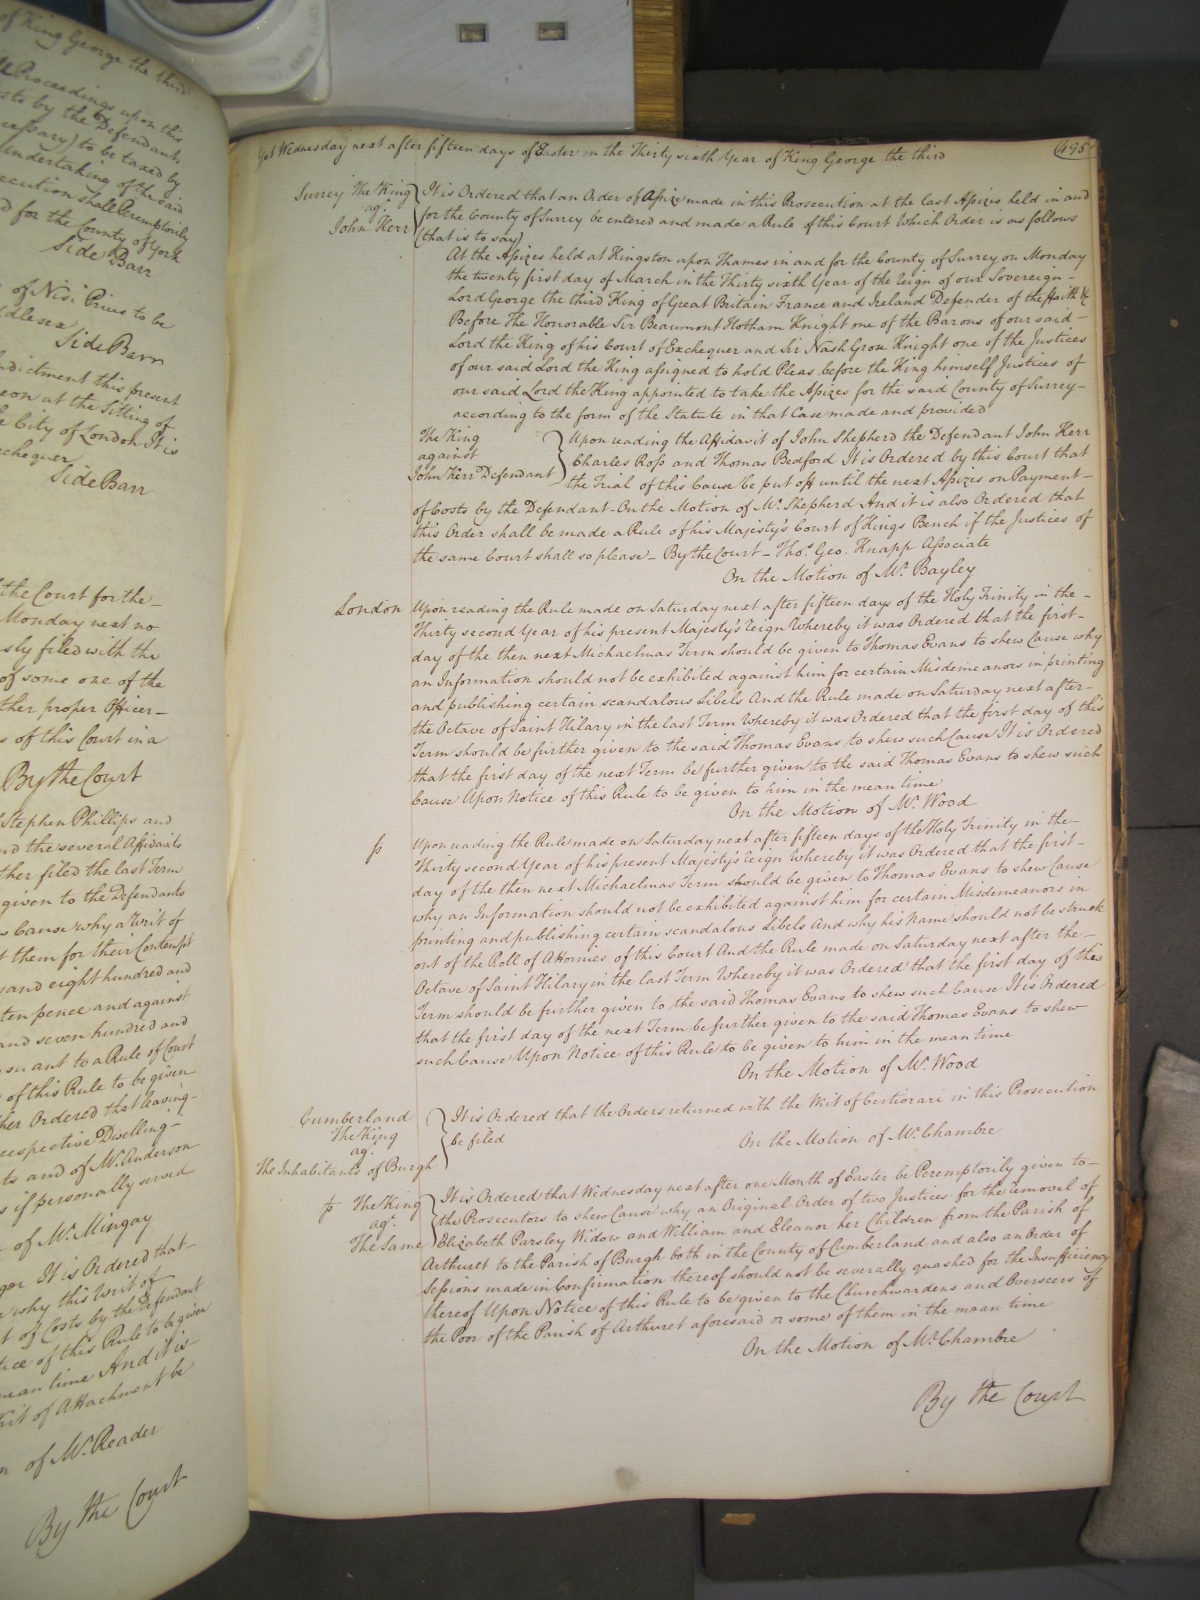 of King George the third
Proceedings upon this
Costs by the Defendants
cessary) to be taxed by
undertaking of the said
ecution shall Peremptorily
d for the County of York
Side Barr
of Nisi Prius to be
dlesex
Side Barr
ndictment this present
eon at the Sitting of
e City of London It is
chequer
Side Barr
the Court for the
Monday next no
sly filed with the
of some one of the
ther proper Officer
s of this Court in a
By the Court
Stephen Phillips and
nd the several Affidavits
ther filed the last Term
given to the Defendants
Cause why a Writ of
t them for their Contempt
sand eight hundred and
ten pence and against
and seven hundred and
suant to a Rule of Court
of this Rule to be given
her Ordered that leaving
respective Dwelling
ts and of Mr. Anderson
s if personally served
of Mr. Mingay
It is Ordered that
why this Writ of
t of Costs by the Defendant
tice of this Rule to be given
mean time And it is
rit of Attachment be
of Mr. Reader
By the Court
Yet Wednesday next after fifteen days of Easter in the Thirty sixth Year of King George the third
495
Surrey The King
agt.
John Kerr
It is Ordered that an Order of Assize made in this Prosecution at the last Assizes held in and
for the County of Surrey be entered and made a Rule of this Court Which Order is as follows
(that is to say)
At the Assizes held at Kingston upon Thames in and for the County of Surrey on Monday
the twenty first day of March in the Thirty sixth Year of the Reign of our Sovereign
Lord George the third King of Great Britain France and Ireland Defender of the Faith &c
Before The Honorable Sir Beaumont Hotham Knight one of the Barons of our said
Lord the King of his Court of Exchequer and Sir Nash Grose Knight one of the Justices
of our said Lord the King assigned to hold Pleas before the King himself Justices of
our said Lord the King appointed to take the Assizes for the said County of Surrey
according to the form of the Statute in that Case made and provided
The King
against
John Kerr Defendant
Upon reading the Affidavit of John Shepherd the Defendant John Kerr
Charles Ross and Thomas Bedford It is Ordered by this Court that
the Trial of this Cause be put off until the next Assizes on Payment
of Costs by the Defendant On the Motion of Mr. Shepherd And it is also Ordered that
this Order shall be made a Rule of his Majesty's Court of Kings Bench if the Justices of
the same Court shall so please – By the Court – Thos. Geo. Knapp Associate
On the Motion of Mr. Bayley
London
Upon reading the Rule made on Saturday next after fifteen days of the Holy Trinity in the
Thirty second Year of his present Majesty's reign Whereby it was Ordered that the first
day of the then next Michaelmas Term should be given to Thomas Evans to shew Cause why
an Information should not be exhibited against him for certain Misdemeanors in printing
and publishing certain scandalous Libels And the Rule made on Saturday next after
the Octave of Saint Hilary in the last Term Whereby it was Ordered that the first day of this
Term should be further given to the said Thomas Evans to shew such Cause It is Ordered
that the first day of the next Term be further given to the said Thomas Evans to shew such
Cause Upon Notice of this Rule to be given to him in the mean time
On the Motion of Mr. Wood
Upon reading the Rule made on Saturday next after fifteen days of the Holy Trinity in the
Thirty second Year of his present Majesty's reign Whereby it was Ordered that the first
day of the then next Michaelmas Term should be given to Thomas Evans to shew Cause
why an Information should not be exhibited against him for certain Misdemeanors in
printing and publishing certain scandalous Libels And why his Name should not be struck
out of the Roll of Attornies of this Court And the Rule made on Saturday next after the
Octave of Saint Hilary in the last Term Whereby it was Ordered that the first day of this
Term should be further given to the said Thomas Evans to shew such Cause It is Ordered
that the first day of the next Term be further given to the said Thomas Evans to shew
such Cause Upon Notice of this Rule to be given to him in the mean time
On the Motion of Mr. Wood
Cumberland
The King
agt.
The Inhabitants of Burgh
It is Ordered that the Orders returned with the Writ of Certiorari in this Prosecution
be filed
On the Motion of Mr. Chambre
The King
agt.
The Same
It is Ordered that Wednesday next after one Month of Easter be Peremptorily given to
the Prosecutors to shew Cause why an Original Order of two Justices for the removal of
Elizabeth Parsley Widow and William and Eleanor her Children from the Parish of
Arthuret to the Parish of Burgh both in the County of Cumberland and also an Order of
Sessions made in Confirmation thereof should not be severally quashed for the Insufficiency
thereof Upon Notice of this Rule to be given to the Churchwardens and Overseers of
the Poor of the Parish of Arthuret aforesaid or some of them in the mean time
On the Motion of Mr. Chambre
By the Court